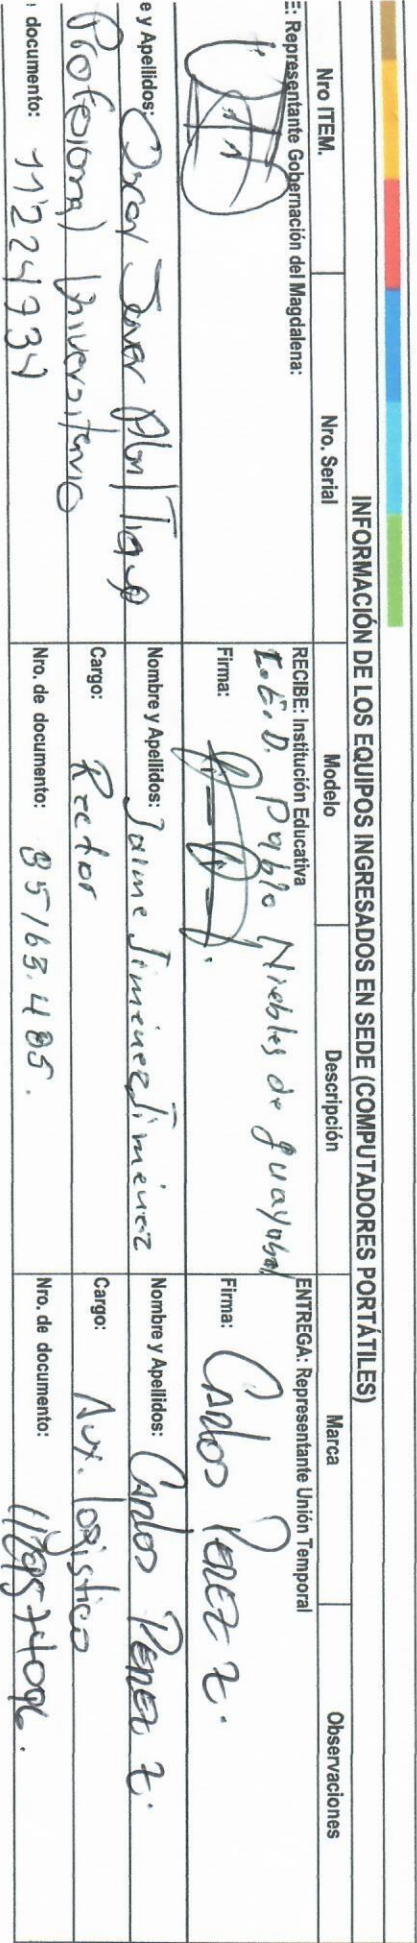 INFORMACIÓN DE LOS EQUIPOS INGRESADOS EN SEDE (COMPUTADORES PORTÁTILES)
Nro ITEM. Nro. Serial Modelo Descripción Marca Observaciones
E: Representante Gobernación del Magdalena:
e y Apellidos: Oscar Javer
Profesional Universitario
documento: 112241934
RECIBE: Institución Educativa
I.E.D. Pablo Niebles de guayabal
Firma:
Nombre y Apellidos: Jaime Jimenez Jiménez
Cargo: Rector
Nro. de documento: 85163.485.
ENTREGA: Representante Unión Temporal
Firma: Carlos Perez Z.
Nombre y Apellidos: Carlos Perez Z.
Cargo: Aux. logistico
Nro. de documento: